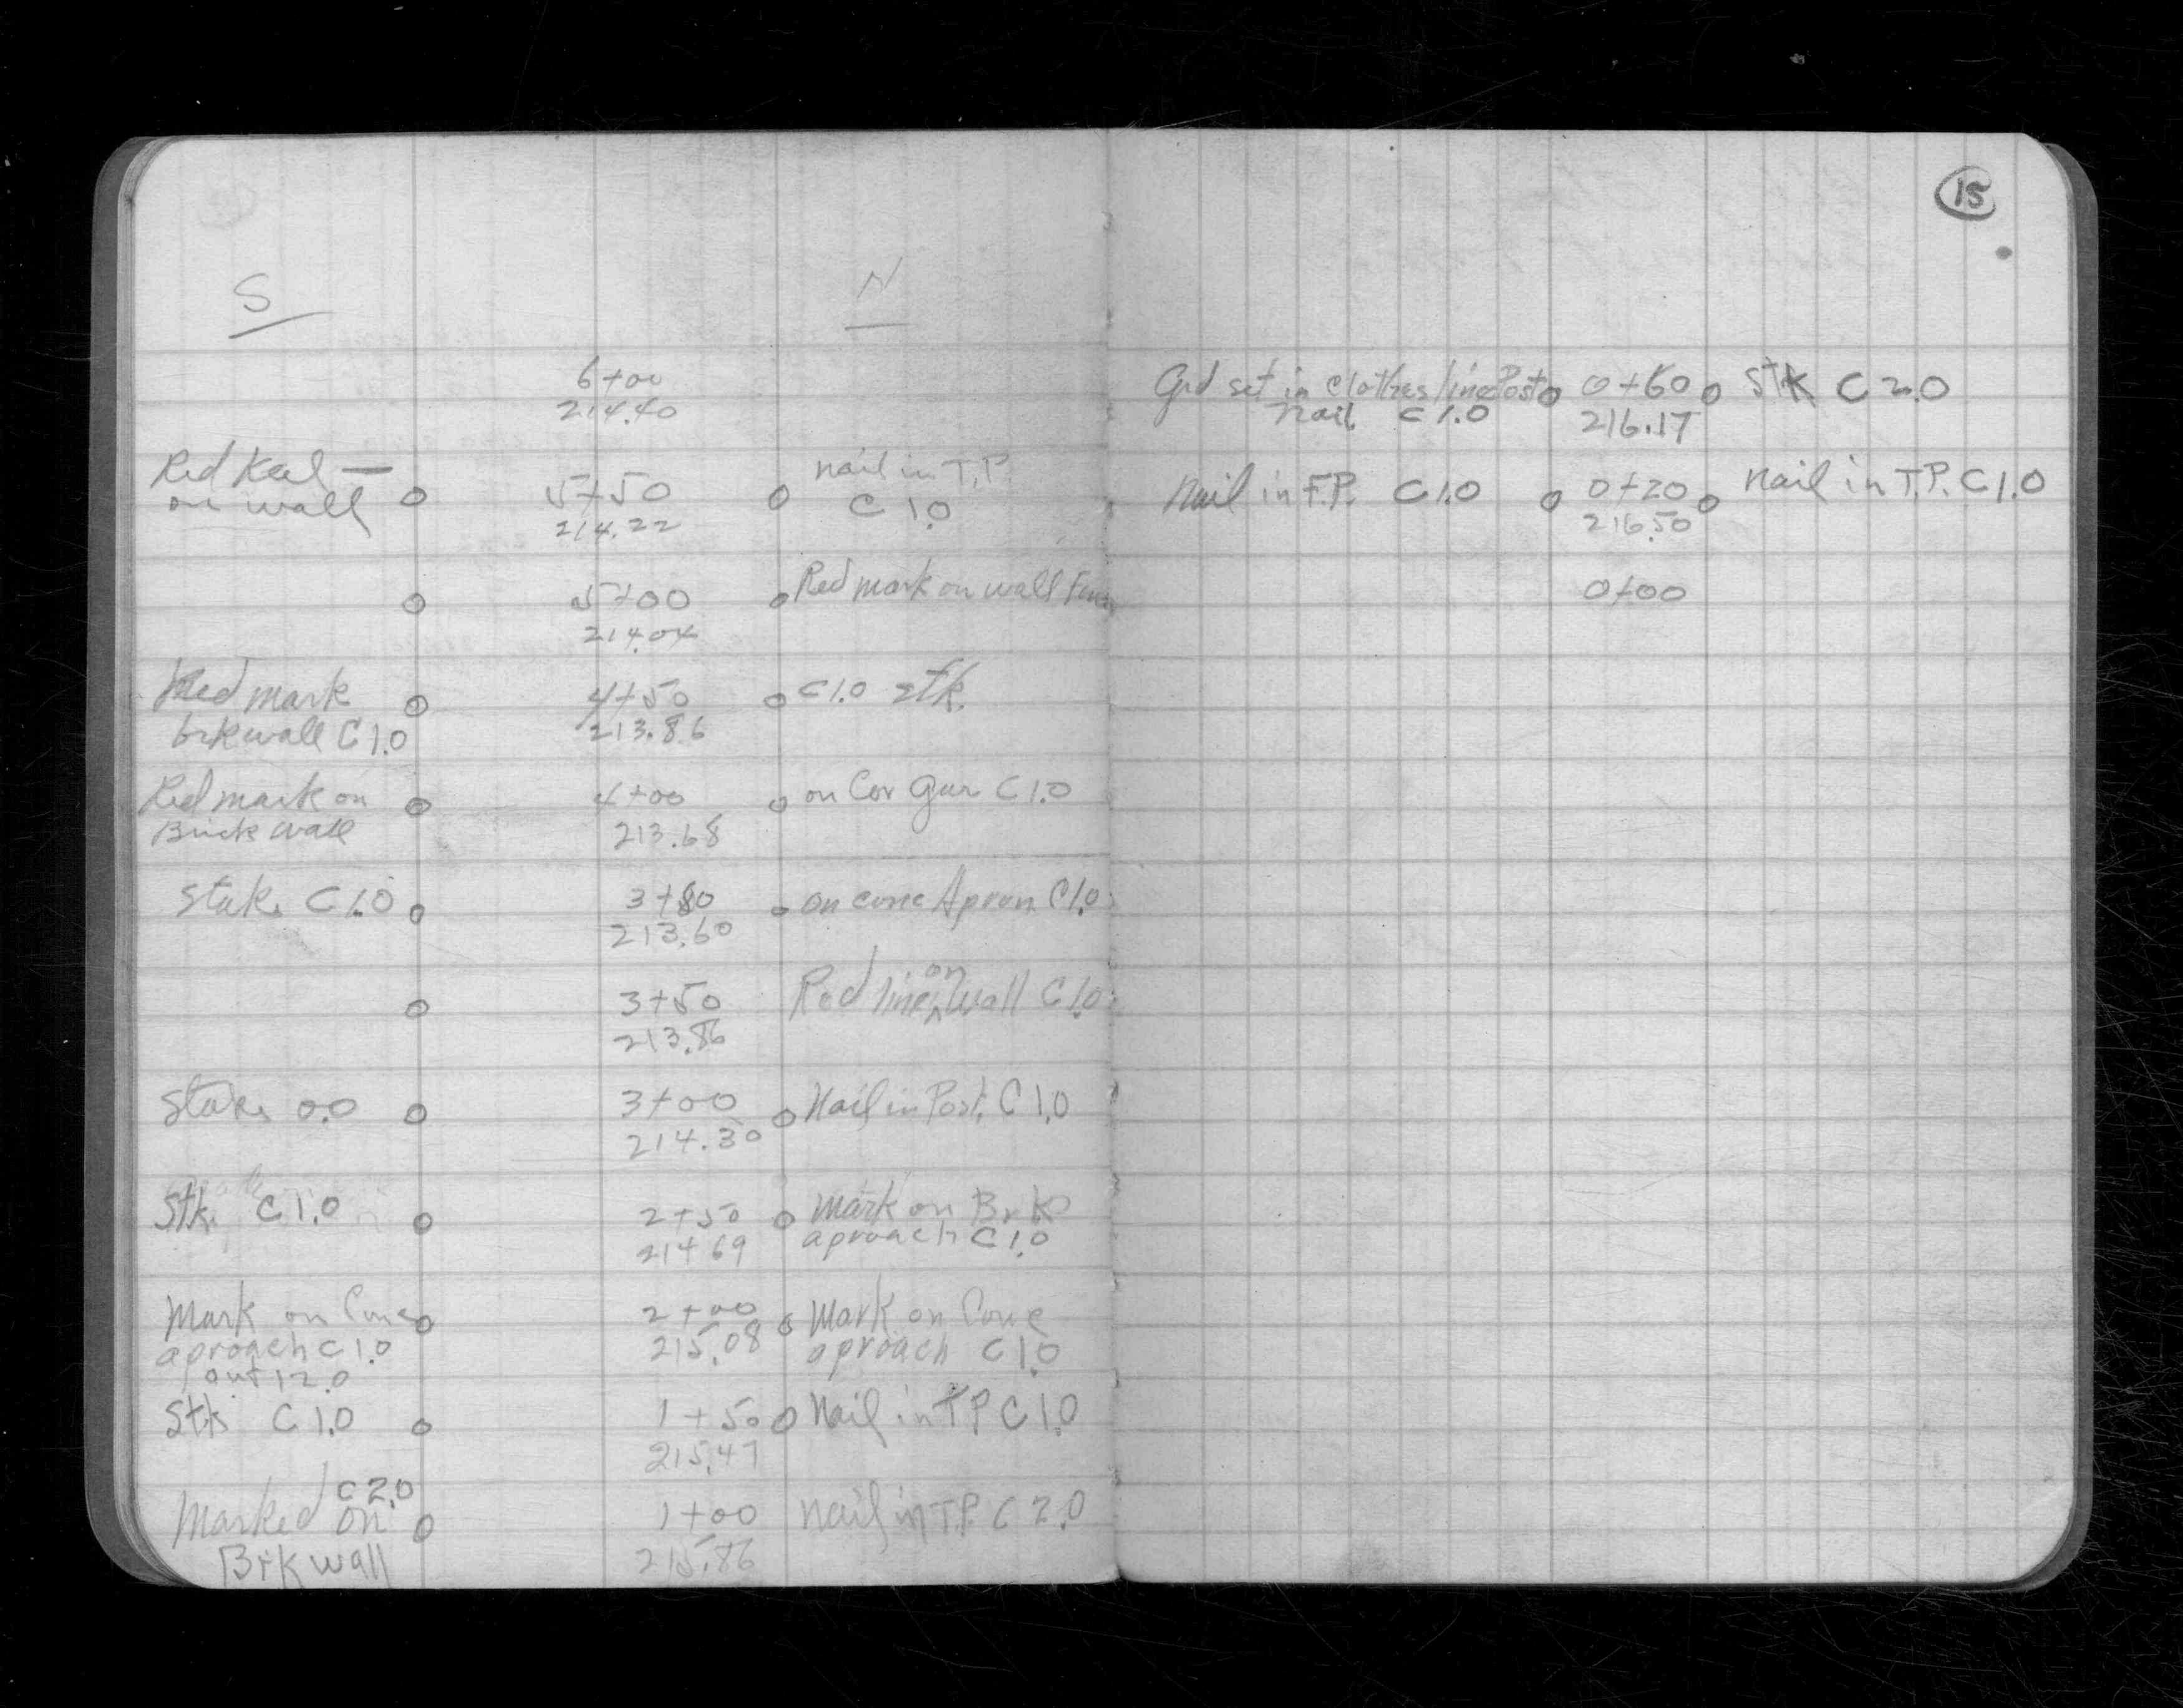 S N
6+00
214.40
Red Keel — 5+50 nail in T.P.
on wall 214.22 C 1.0
5+00 Red mark on wall
214.04
Red mark 4+50 C 1.0 stk.
brk wall C 1.0 213.86
Red mark on 4+00 on Cor Gar C 1.0
Brick wall 213.68
Stake C 1.0 3+80 on conc Apron C 1.0
213.60
3+50 Red line on Wall C 1.0
213.86
Stake 0.0 3+00 Nail in Post. C 1.0
214.30
Stk. C 1.0 2+50 Mark on Brk
214 69 aproach C 1.0
Mark on Conc 2+00 Mark on Conc
aproach C 1.0 215.08 aproach C 1.0
out 12.0
Stk C 1.0 1+50 Nail in TP C 1.0
215.47
C 2.0
Marked on 1+00 Nail in T.P. C 2.0
Brk wall 215.86
15
Grd set in Clothes line Post 0+60 Stk C 2.0
nail C 1.0 216.17
Nail in F.P. C 1.0 0+20 Nail in T.P. C 1.0
216.50
0+00